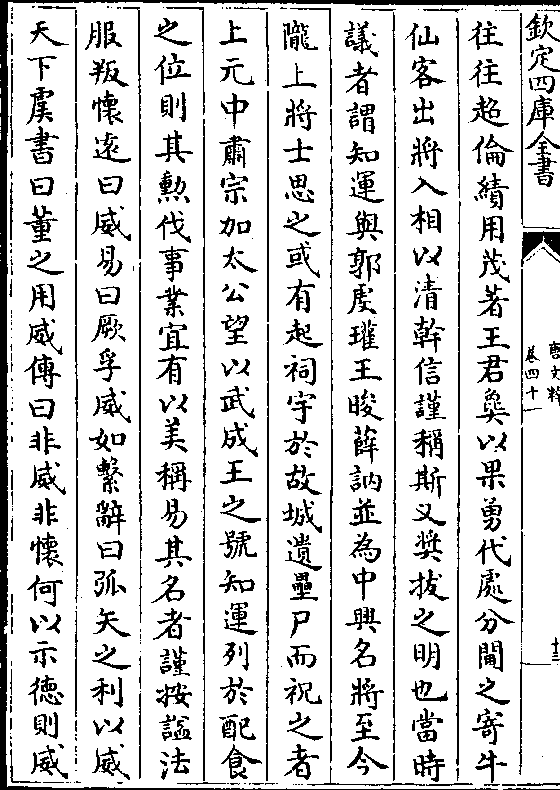 欽定四庫全書
唐文粹
卷四十一
十三
往往超倫績用茂著王君㚟以果勇代處分閫之寄牛
仙客出將入相以清幹信謹稱斯又奬拔之明也當時
議者謂知運與郭虔瓘王晙薛訥並為中興名將至今
隴上將士思之或有起祠宇於故城遺壘尸而祝之者
上元中肅宗加太公望以武成王之號知運列於配食
之位則其勲伐事業宜有以美稱易其名者謹按諡法
服叛懷逺曰威易曰厥孚威如繫辭曰弧矢之利以威
天下虞書曰董之用威傳曰非威非懷何以示徳則威